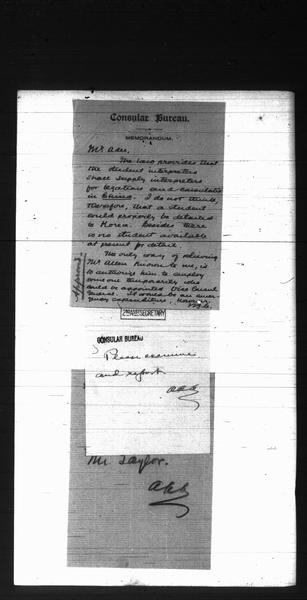 Consular Bureau.
MEMORANDUM.
Mr Adee,
The law provides that
the student interpreters
shall supply interpreters
for legations and consulates
in China. I do not think,
therefore, that a student
could properly be detailed
to Korea. Besides there
is no student available
at present for detail.
The only way of relieving
Mr Allen known to me, is
to authorize him to employ
someone temporarily who
could be appointed Vice Consul
General. It would be an
expenditure, however.
Approved
2D ASST SECRETARY
CONSULAR BUREAU
Please examine
and report
AAA
Mr Taylor.
AAA